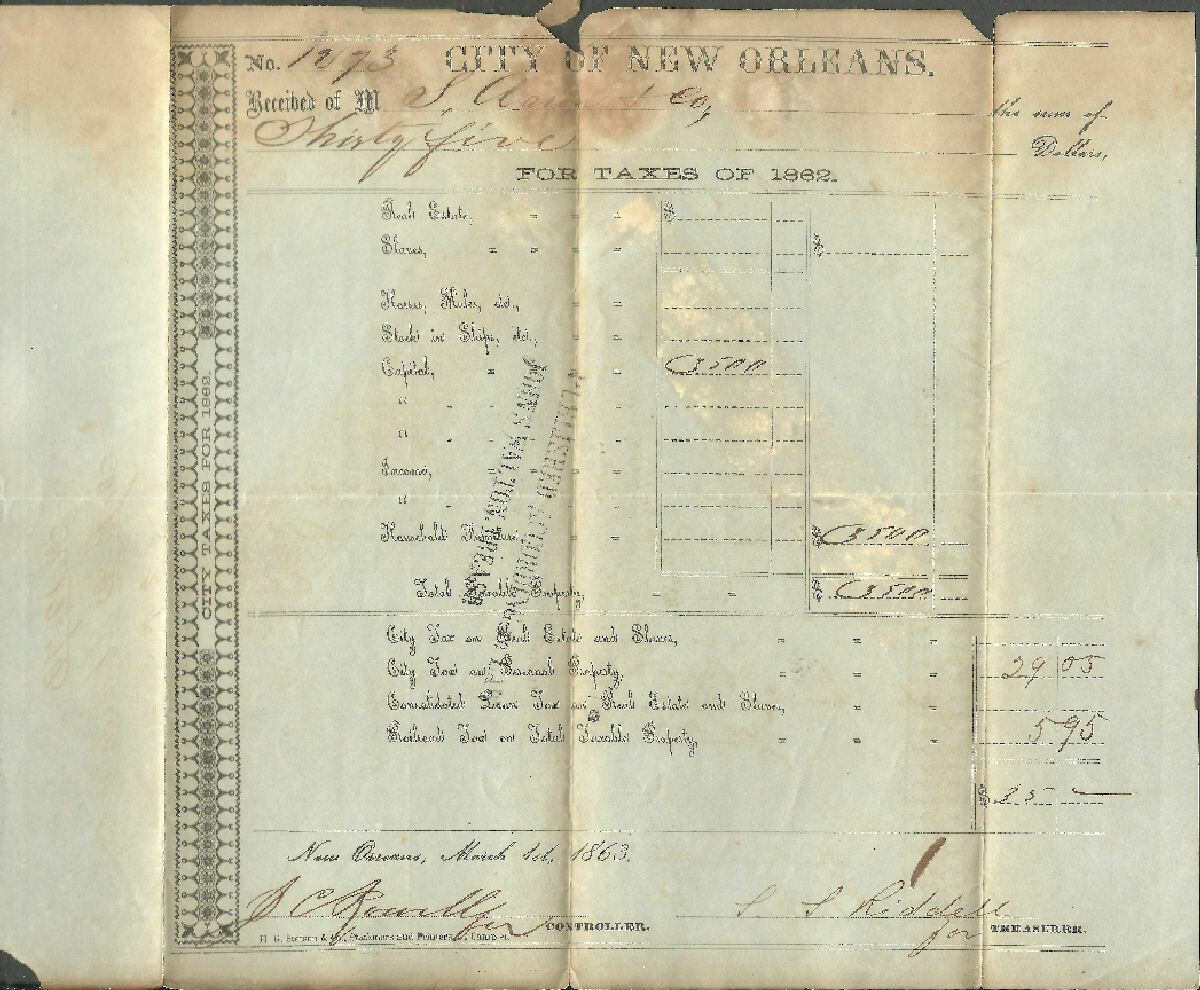 No. 1273 CITY OF NEW ORLEANS.
Received of M & Co, the sum of
Thirty five Dollars,
FOR TAXES OF 1862.
Real Estate, $
Slaves, $
Horses, Mules, etc.,
Stock in Ships, etc.,
Capital, 3500
"
"
Income,
"
Household Furniture $ 3500
Total Taxable Property, $ 3500
City Tax on Real Estate and Slaves,
City Tax on Personal Property, 29 05
Consolidated Loan Tax on Real Estate and Slaves,
Railroad Tax on Total Taxable Property, 5 95
$ 35 —
New Orleans, March 1st, 1863.
for CONTROLLER.
S S Riddell
for TREASURER.
CITY TAXES FOR 1862.